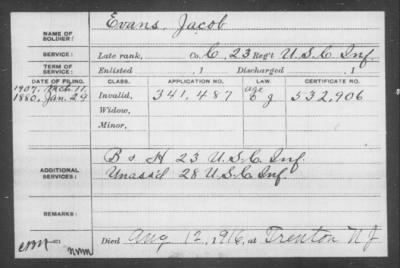 NAME OF SOLDIER: Evans, Jacob
SERVICE: Late rank, Co. C, 23 Reg't U.S.C. Inf.
TERM OF SERVICE: Enlisted , 1 Discharged , 1
DATE OF FILING. CLASS. APPLICATION NO. LAW. CERTIFICATE NO.
1907. Mch. 11. age
1880. Jan. 29 Invalid, 341.487 6 g 532,906
Widow,
Minor,
ADDITIONAL SERVICES: B & H 23 U.S.C. Inf.
Unas'd 28 U.S.C. Inf.
REMARKS:
Died Aug 12, 1916, at Trenton N J